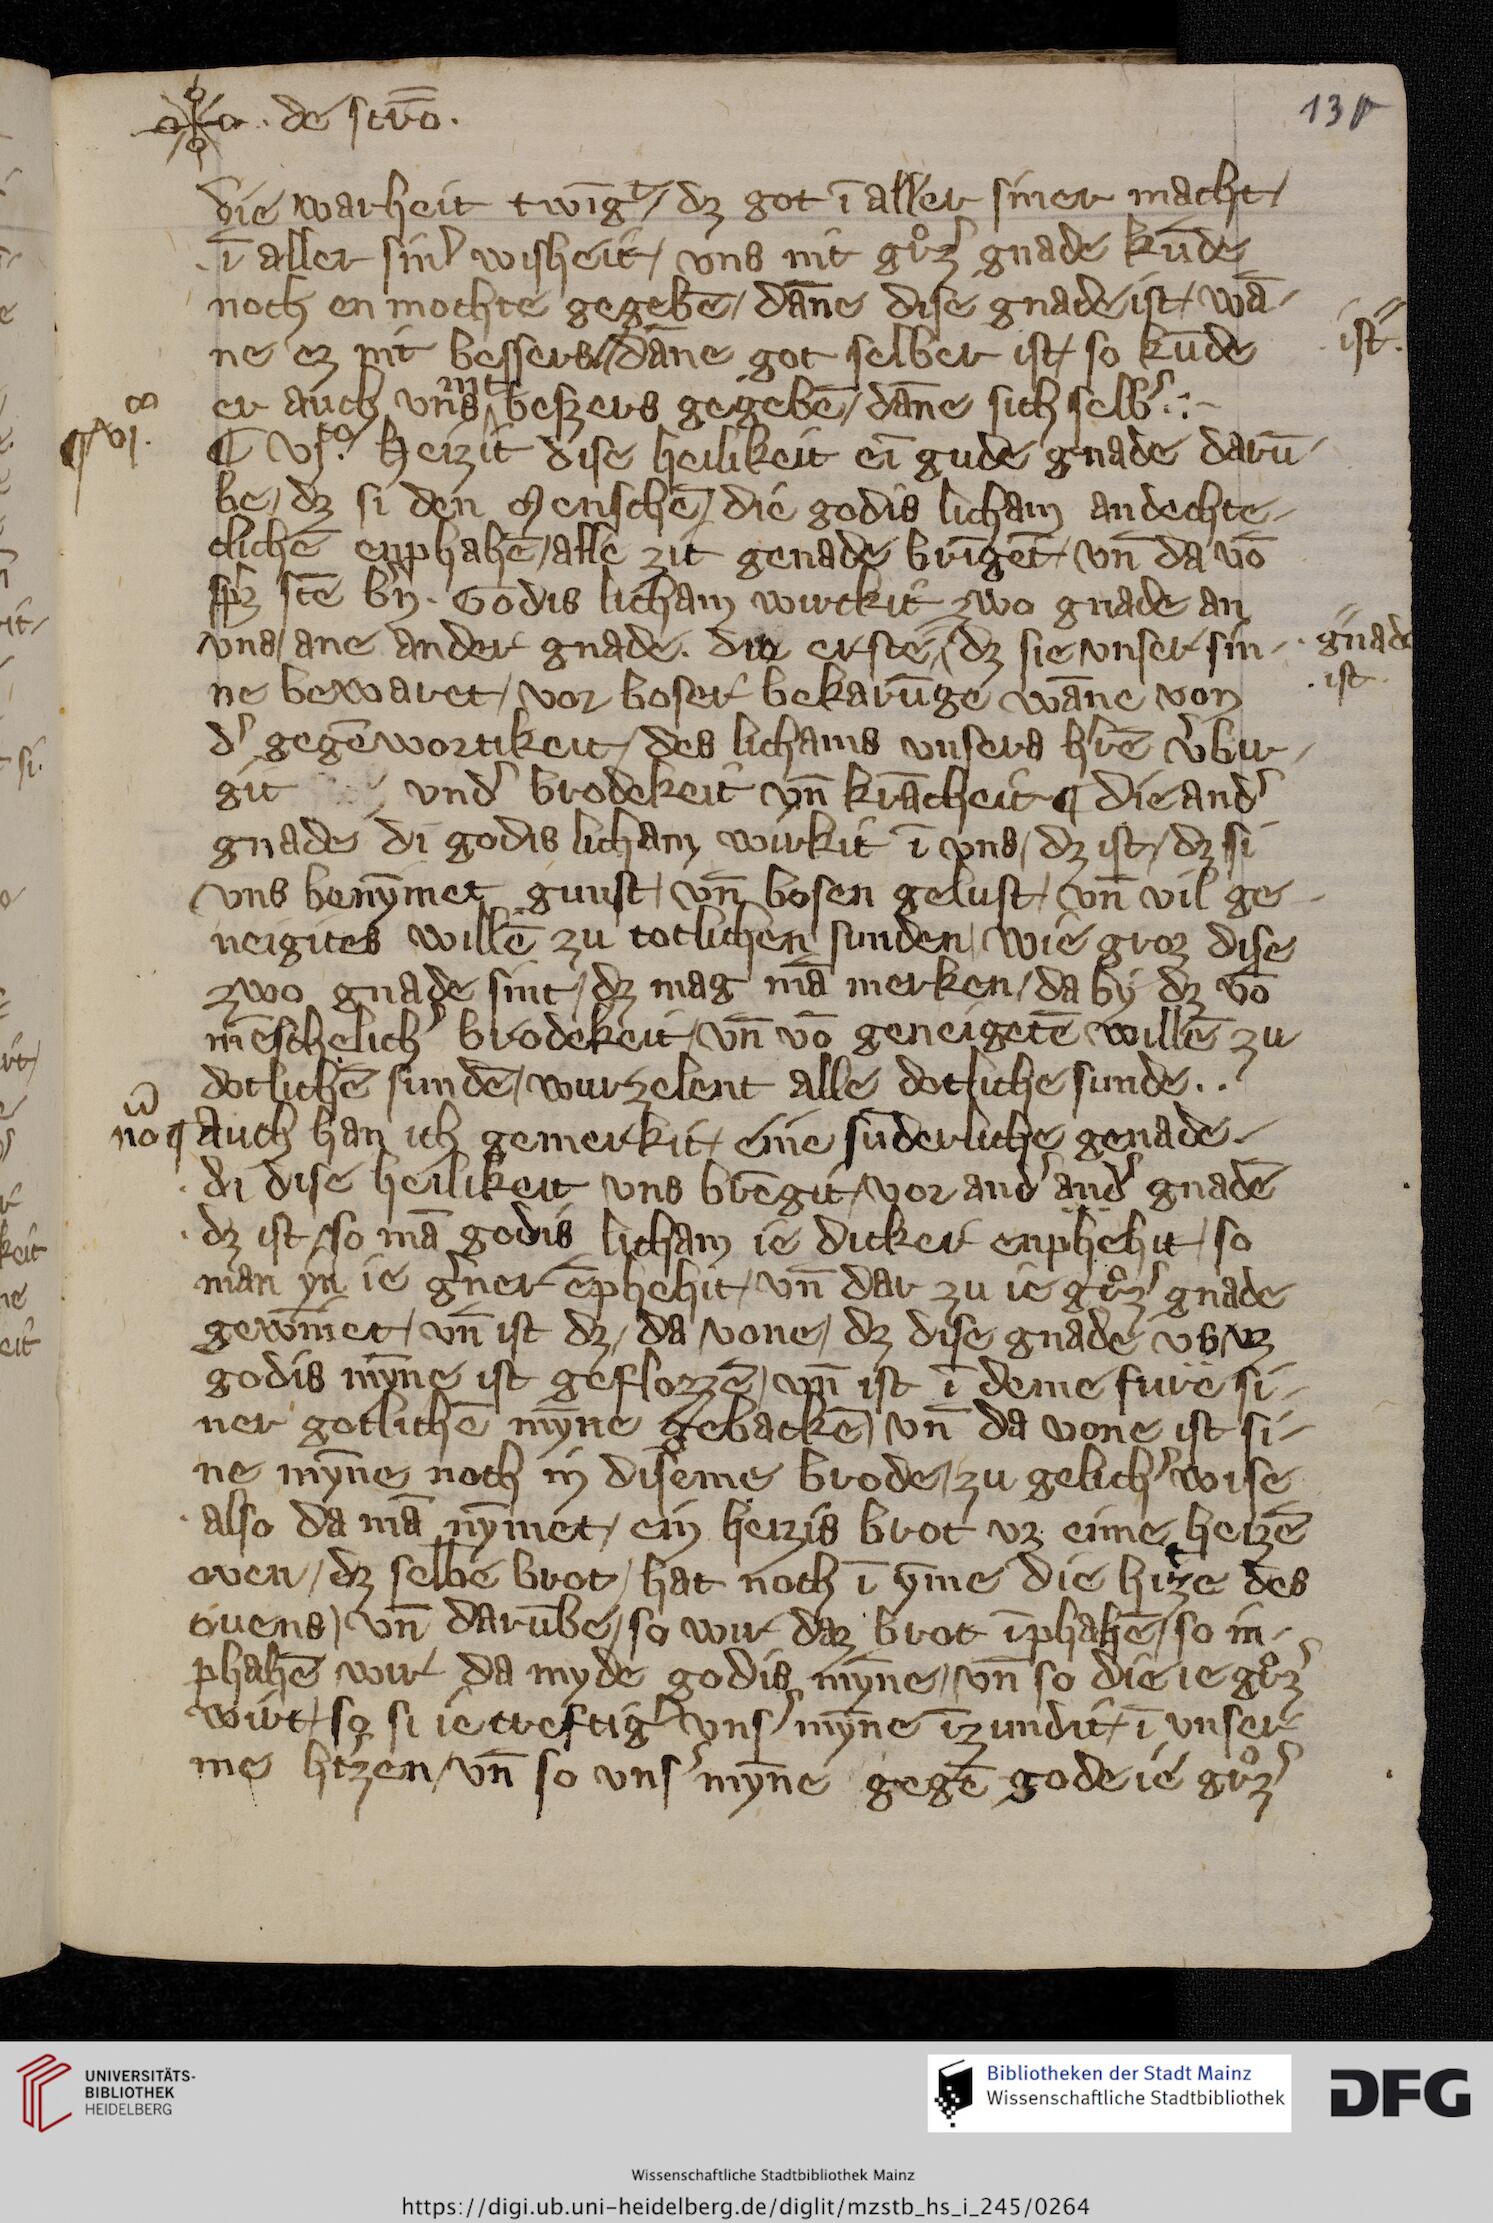 · de scr̄o ·
130
die warheit twīgᵗ / dz got ī aller siner macht /
ī aller sinˀ wisheit / vns nit grͦzˀ gnade kūde
noch en mochte gegebē / dāne dise gnade ist / wā-
ne ez nit bessers / dāne got selber ist / so kūde
ist ·
er auch vns nit beszers gegebē / dāne sich selbˀ
vj ·
heizit dise heilikeit eī gude gnade darū-
be / dz si den menschē / die godis licham andechte-
clichē enphahē / alle zit genade brīgēt / vn̄ da vō
spͥz stē bˀn · Godis licham wirckit zwo gnade an
vns / ane ander gnade · die erste / dz sie vnser sin-
gnade
ist ·
ne bewaret / vor boser bekarūge wāne von
dˀ gegēwortikeit / des lichams vnsers hˀrē vˀbir-
git vndˀ brodekeit vn̄ krācheit ¶ die andˀ
gnade di godis licham wirkit ī vns / dz ist / dz si
vns benȳmet gunst / vn̄ bosen gelust / vn̄ vil ge-
neigites willē zu totlichen sunden / wie groz dise
zwo gnade sint / dz mag mā merken / da by dz vō
mēschelichˀ brodekeit / vn̄ vō geneigetē willē zu
dotlichē sundē / wurzelent alle dotliche sunde ··
no ¶ Auch han ich gemerkit / eine sūderliche genade -
di dise heilikeit vns brēgit / vor andˀ andˀ gnadē
dz ist / so mā godis licham ie dicker enphehit / so
man yn ie gˀner ēphehit / vn̄ dar zu ie grͦzˀ gnade
gewīnet / vn̄ ist dz / da vone / dz dise gnade vs vz
godis mȳne ist geflozzē / vn̄ ist ī deme fure si-
ner gotlichē mȳne gebackē / vn̄ da vone ist si-
ne mȳne noch in diseme brode / zu gelichˀ wise
also da mā nȳmet / ein heizis brot vz eime heizē
oven / dz selbe brot / hat noch ī ȳme die hitze des
ouens / vn̄ darūbe / so wir daz brot īphahē / so in-
phahē wir da myde godis mȳne / vn̄ so die ie grͦzˀ
wirt / so si ie creftigˀ vnsˀ mȳne īzundit / ī vnser-
me hˀtzen / vn̄ so vnsˀ mȳne gegē gode ie grͦzˀ
UNIVERSITÄTS-
BIBLIOTHEK
HEIDELBERG
Bibliotheken der Stadt Mainz
Wissenschaftliche Stadtbibliothek
DFG
Wissenschaftliche Stadtbibliothek Mainz
https://digi.ub.uni-heidelberg.de/diglit/mzstb_hs_i_245/0264